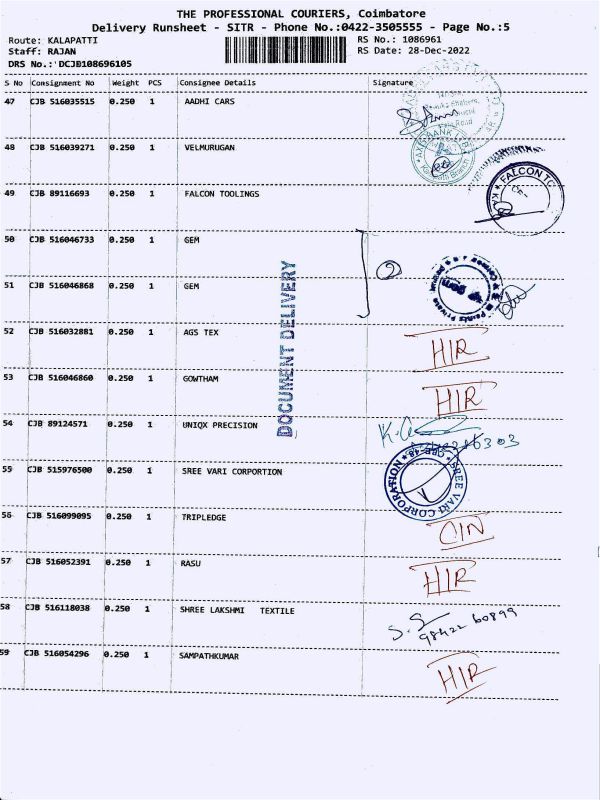 THE PROFESSIONAL COURIERS, Coimbatore
Delivery Runsheet - SITR - Phone No.:0422-3505555 - Page No.:5
Route: KALAPATTI
RS No.: 1086961
Staff: RAJAN
RS Date: 28-Dec-2022
DRS No.: DCJB108696105
S No Consignment No Weight PCS Consignee Details Signature
47 CJB 516035515 0.250 1 AADHI CARS
AXIS BANK LTD
48 CJB 516039271 0.250 1 VELMURUGAN
49 CJB 89116693 0.250 1 FALCON TOOLINGS
FALCON TO
50 CJB 516046733 0.250 1 GEM
2
51 CJB 516046868 0.250 1 GEM
gem
DOCUMENT DELIVERY
52 CJB 516032881 0.250 1 AGS TEX
HIR
53 CJB 516046860 0.250 1 GOWTHAM
HIR
54 CJB 89124571 0.250 1 UNIQX PRECISION
55 CJB 515976500 0.250 1 SREE VARI CORPORTION
SREE VARI CORPORATION
CBE-48
56 CJB 516099095 0.250 1 TRIPLEDGE
OIN
57 CJB 516052391 0.250 1 RASU
HIR
58 CJB 516118038 0.250 1 SHREE LAKSHMI TEXTILE
S.S
98422 60899
59 CJB 516054296 0.250 1 SAMPATHKUMAR
HIR